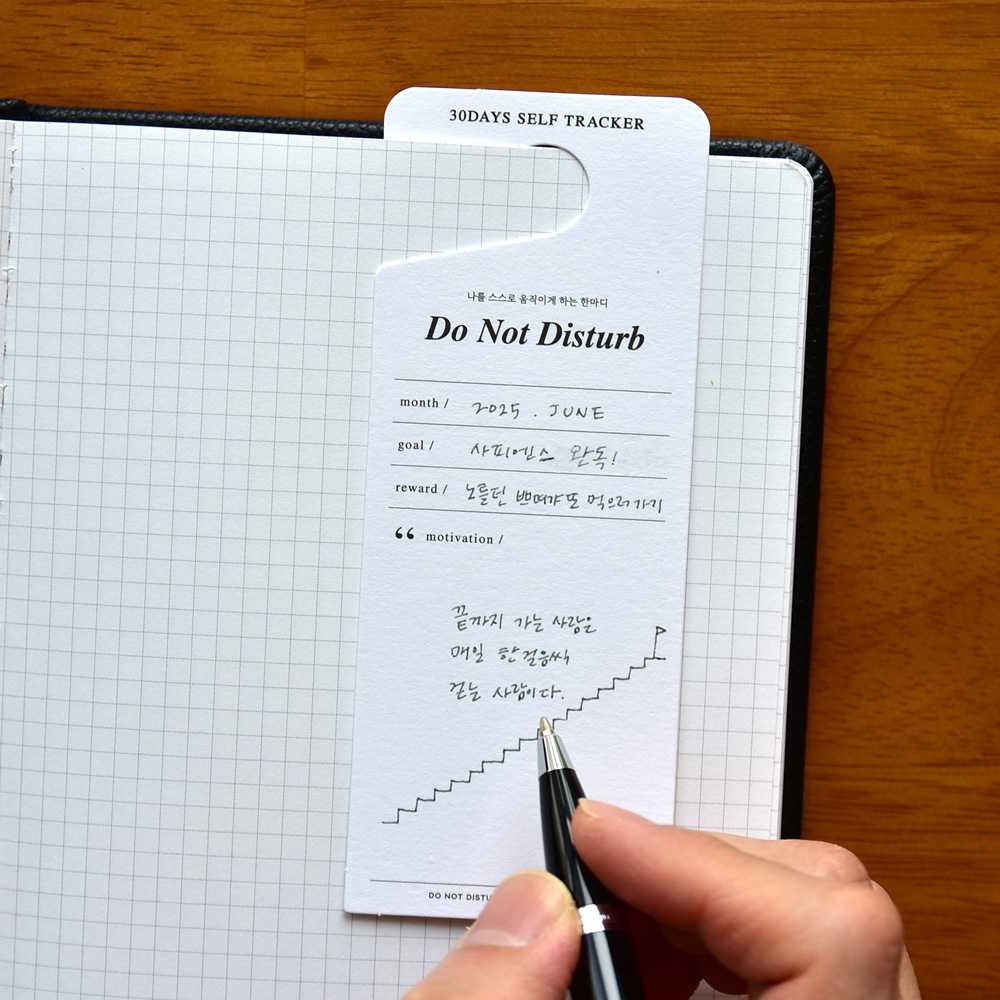 30DAYS SELF TRACKER
나를 스스로 움직이게 하는 한마디
Do Not Disturb
month / 2025 . JUNE
goal / 사피엔스 완독!
reward / 노틀던 쁘띠갸또 먹으러가기
“ motivation /
끝까지 가는 사람은
매일 한걸음씩
걷는 사람이다.
DO NOT DISTU